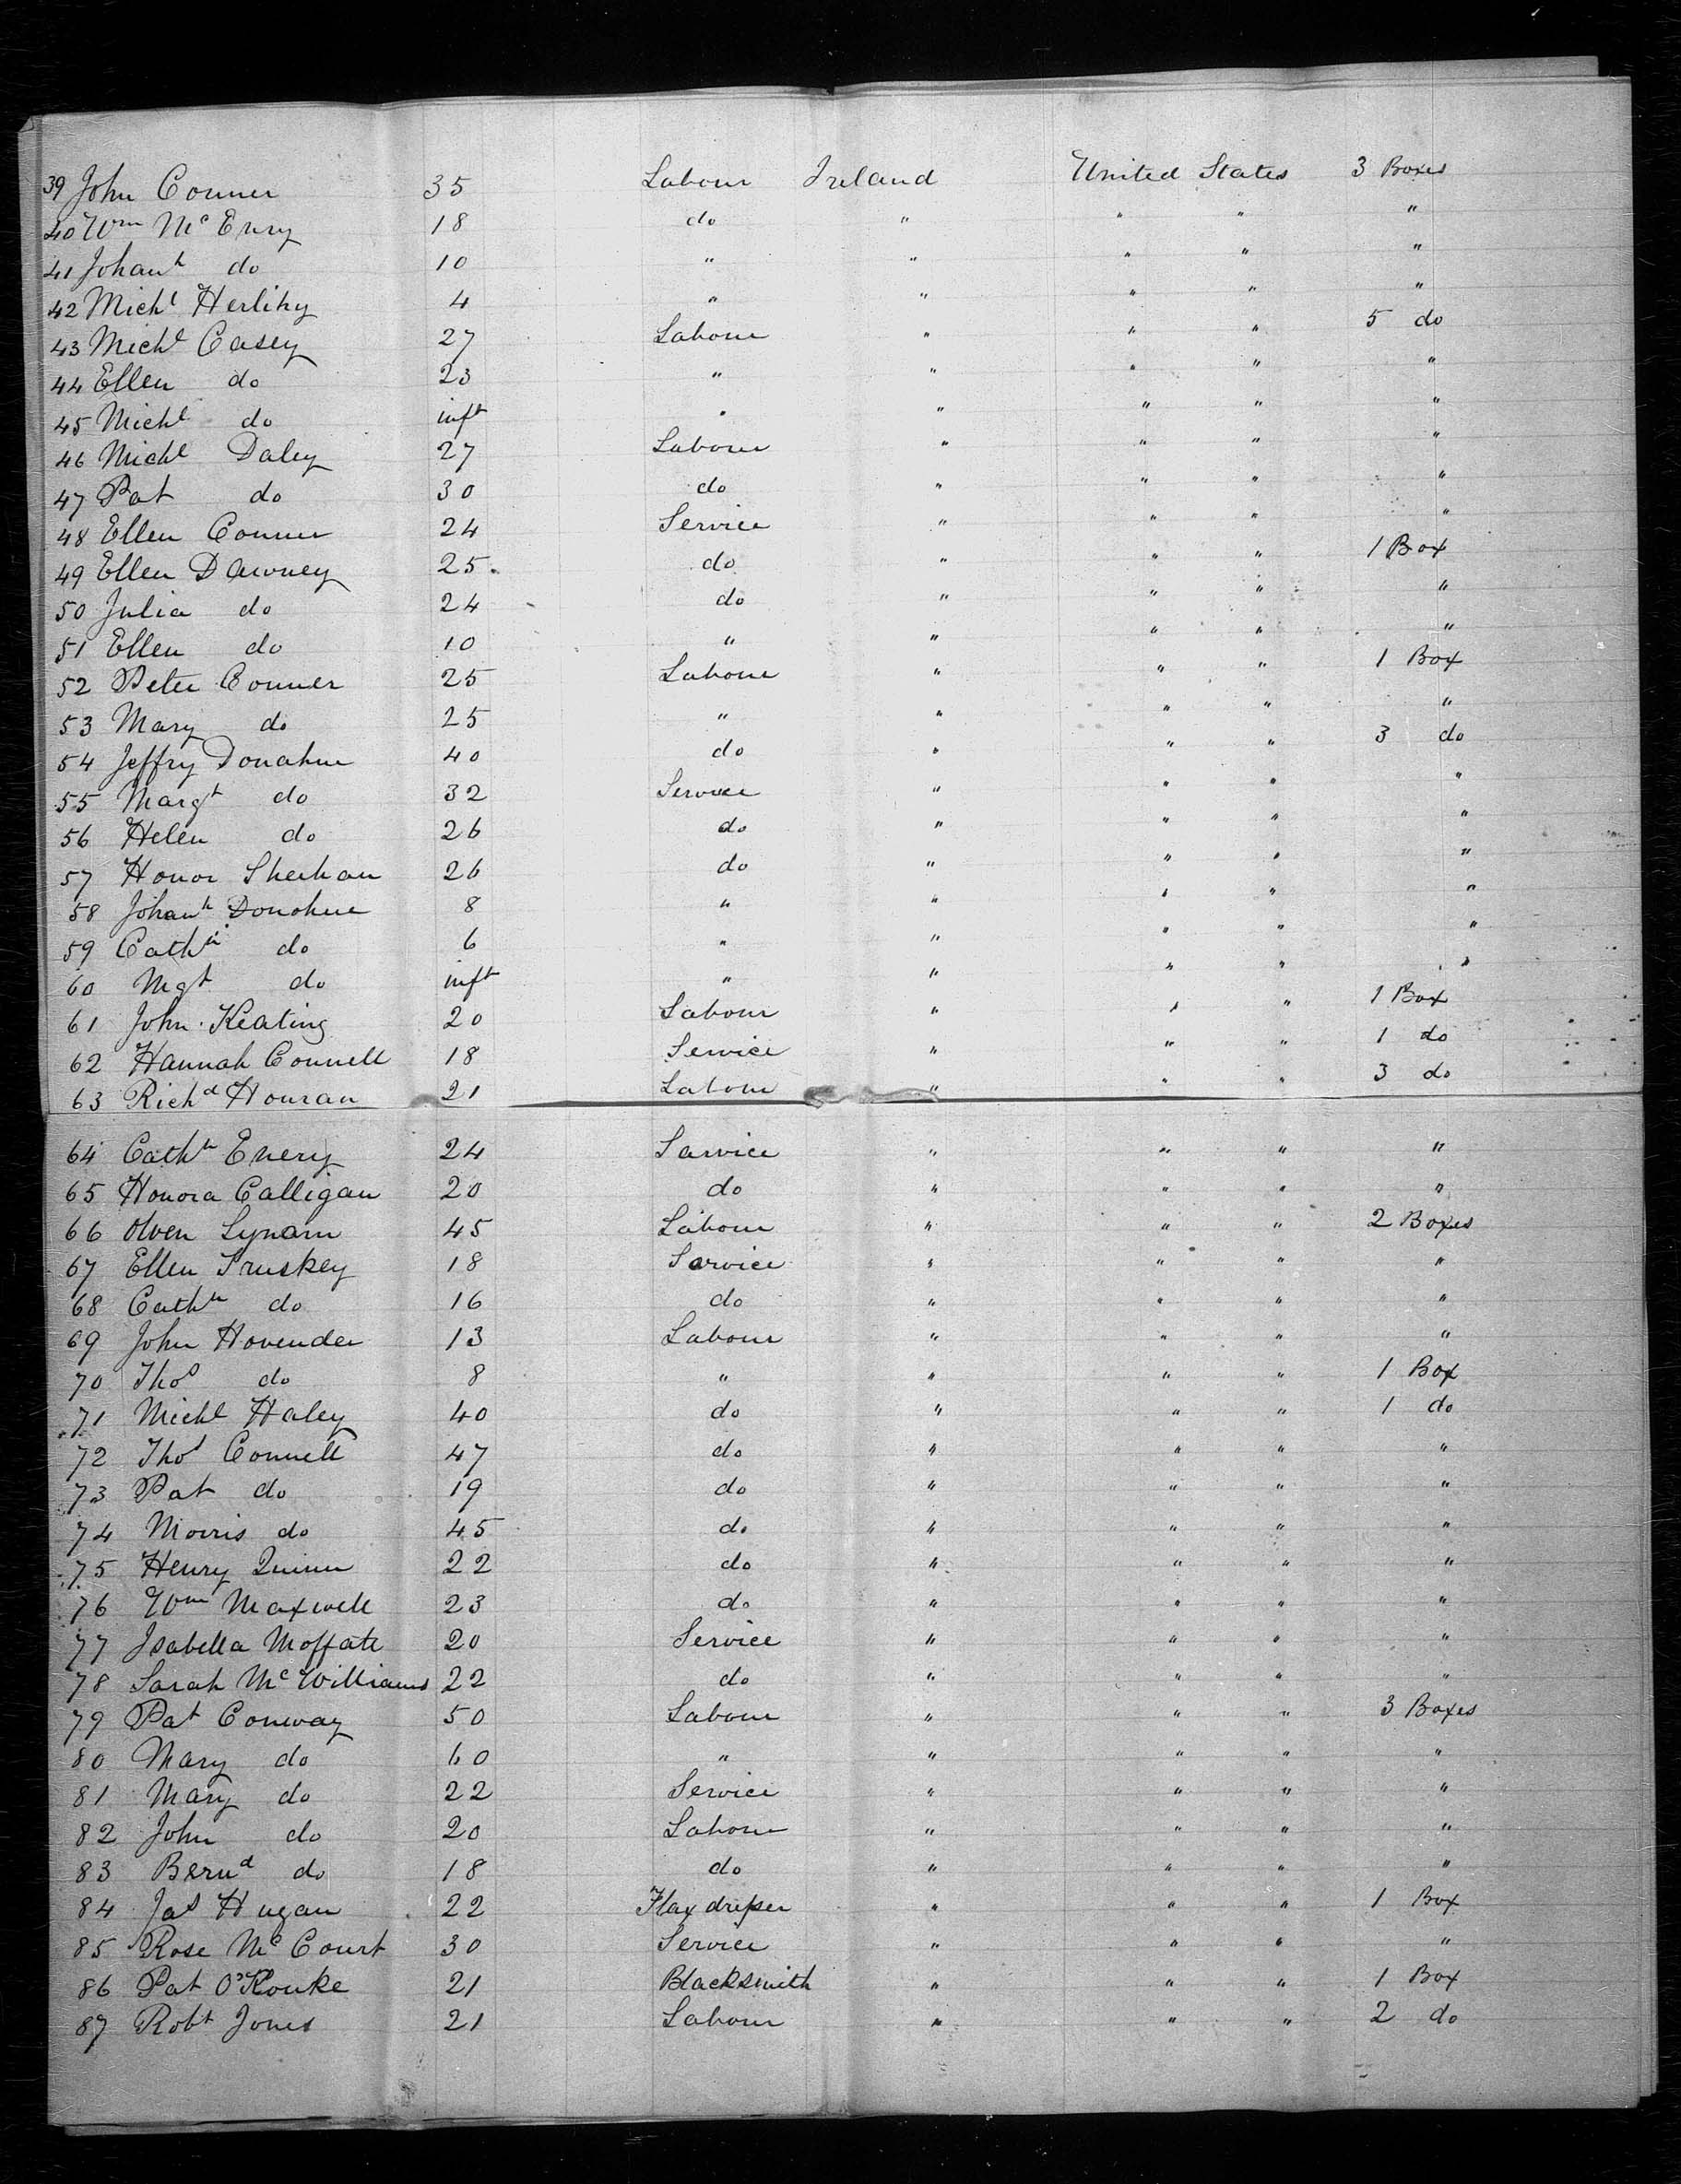 39 John Conner 35 Labour Ireland United States 3 Boxes
40 Wm Mc Enry 18 do " " " "
41 Johanh do 10 " " " " "
42 Michl Herlihy 4 " " " " "
43 Michl Casey 27 Labour " " " 5 do
44 Ellen do 23 " " " " "
45 Michl do inft " " " " "
46 Michl Daley 27 Labour " " " "
47 Pat do 30 do " " " "
48 Ellen Conner 24 Service " " " "
49 Ellen Dawney 25. do " " " 1 Box
50 Julia do 24 do " " " "
51 Ellen do 10 " " " " "
52 Peter Conner 25 Labour " " " 1 Box
53 Mary do 25 " " " " "
54 Jeffry Donahue 40 do " " " 3 do
55 Margt do 32 Service " " " "
56 Helen do 26 do " " " "
57 Honor Sheehan 26 do " " " "
58 Johanh Donohue 8 " " " " "
59 Cathn do 6 " " " " "
60 Mgt do inft " " " " "
61 John Keating 20 Labour " " " 1 Box
62 Hannah Connell 18 Service " " " 1 do
63 Richd Honran 21 Labour " " " 3 do
64 Cathn Enery 24 Sarvice " " " "
65 Honora Calligan 20 do " " " "
66 Owen Lynam 45 Labour " " " 2 Boxes
67 Ellen Truskey 18 Sarvice " " " "
68 Cathn do 16 do " " " "
69 John Hovenden 13 Labour " " " "
70 Thos do 8 " " " " 1 Box
71 Michl Haley 40 do " " " 1 do
72 Thos Connell 47 do " " " "
73 Pat do 19 do " " " "
74 Morris do 45 do " " " "
75 Henry Quinn 22 do " " " "
76 Wm Maxwell 23 do " " " "
77 Isabella Moffate 20 Service " " " "
78 Sarah Mc Williams 22 do " " " "
79 Pat Conway 50 Labour " " " 3 Boxes
80 Mary do 60 " " " " "
81 Mary do 22 Service " " " "
82 John do 20 Labour " " " "
83 Bernd do 18 do " " " "
84 Jas Hugan 22 Flax dresser " " " 1 Box
85 Rose Mc Court 30 Service " " " "
86 Pat O'Rouke 21 Blacksmith " " " 1 Box
87 Robt Jones 21 Labour " " " 2 do